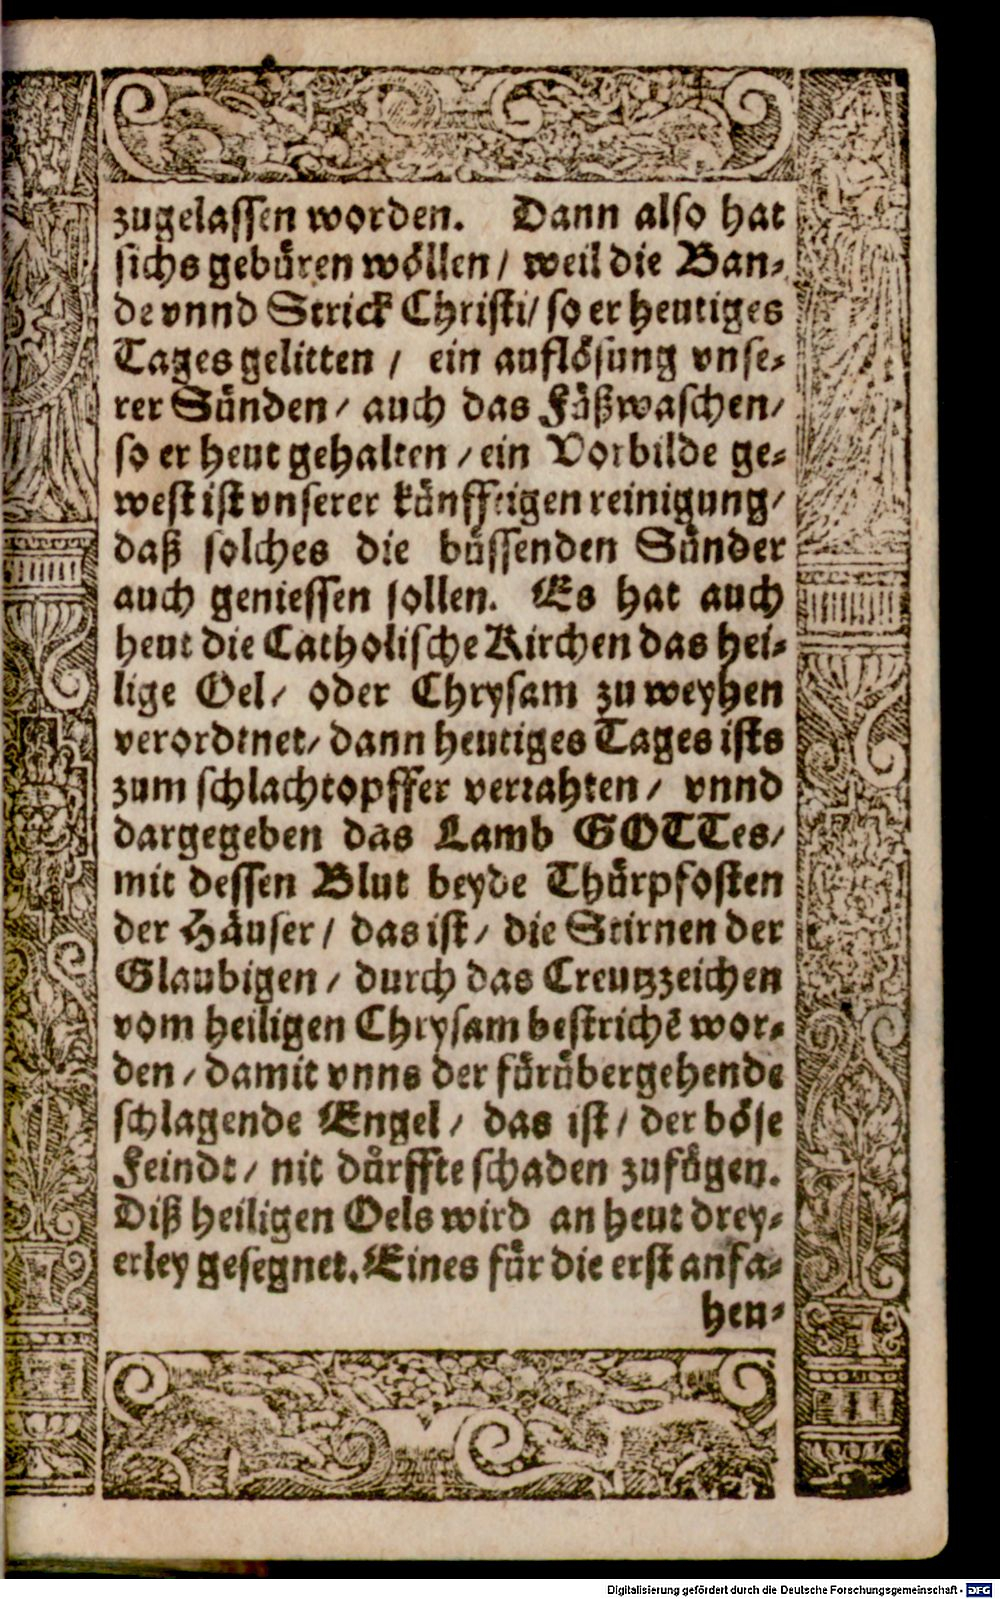 zugelassen worden. Dann also hat
sichs gebüren wöllen / weil die Ban-
de vnnd Strick Christi / so er heutiges
Tages gelitten / ein auflösung vnse-
rer Sünden / auch das Füßwaschen /
so er heut gehalten / ein Vorbilde ge-
west ist vnserer künfftigen reinigung /
daß solches die büssenden Sünder
auch geniessen sollen. Es hat auch
heut die Catholische Kirchen das hei-
lige Oel / oder Chrysam zu weyhen
verordtnet / dann heutiges Tages ists
zum schlachtopffer verrahten / vnnd
dargegeben das Lamb GOTTes /
mit dessen Blut beyde Thürpfosten
der Häuser / das ist / die Stirnen der
Glaubigen / durch das Creutzzeichen
vom heiligen Chrysam bestrichē wor-
den / damit vnns der fürübergehende
schlagende Engel / das ist / der böse
Feindt / nit dürffte schaden zufügen.
Diß heiligen Oels wird an heut drey-
erley gesegnet. Eines für die erst anfa-
hen-
Digitalisierung gefördert durch die Deutsche Forschungsgemeinschaft - DFG